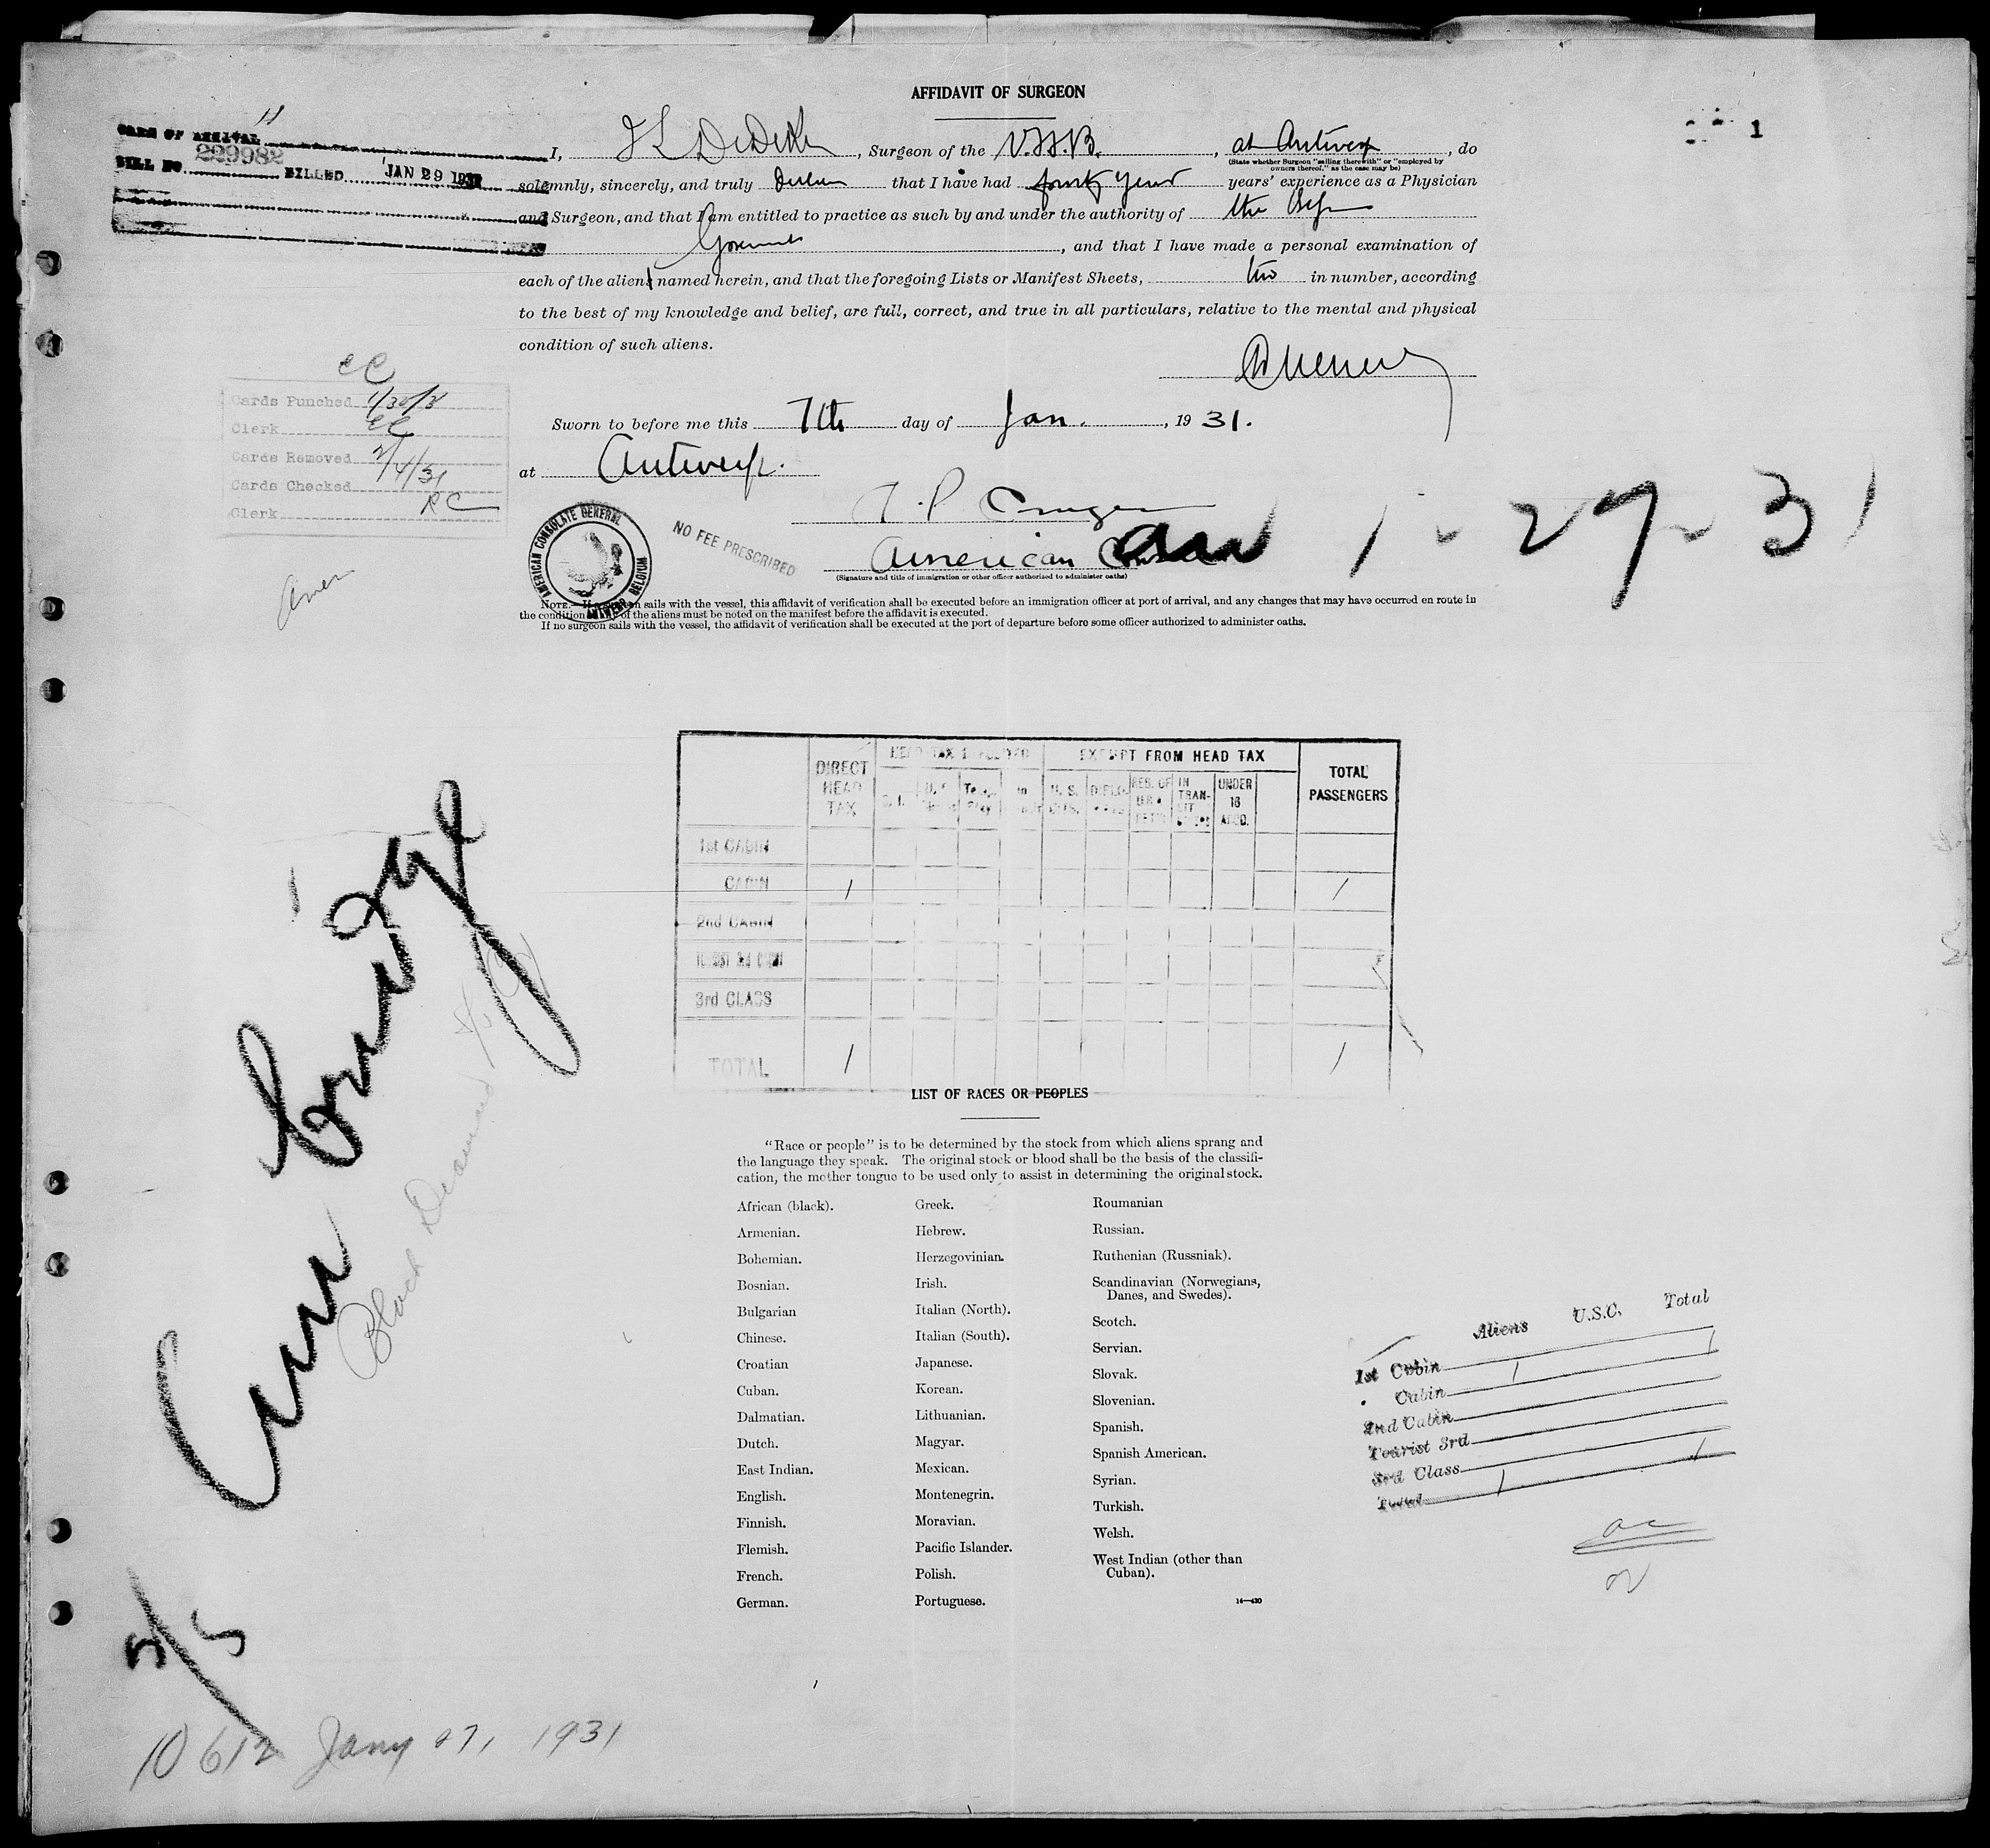 AFFIDAVIT OF SURGEON
1
BILL NO 229982 BILLED JAN 29 1931
I, , Surgeon of the , at Antwerp , do
(State whether Surgeon "sailing therewith" or "employed by owners thereof," as the case may be)
solemnly, sincerely, and truly that I have had years' experience as a Physician
and Surgeon, and that I am entitled to practice as such by and under the authority of the
, and that I have made a personal examination of
each of the aliens named herein, and that the foregoing Lists or Manifest Sheets, two in number, according
to the best of my knowledge and belief, are full, correct, and true in all particulars, relative to the mental and physical
condition of such aliens.
Cards Punched
Clerk
Cards Removed 2/4/31
Cards Checked
Clerk RC
Sworn to before me this 7th day of Jan. , 19 31.
at Antwerp.
1-27-31
American
(Signature and title of immigration or other officer authorized to administer oaths)
AMERICAN CONSULATE GENERAL
ANTWERP BELGIUM
NO FEE PRESCRIBED
NOTE.—If a surgeon sails with the vessel, this affidavit of verification shall be executed before an immigration officer at port of arrival, and any changes that may have occurred en route in
the condition of the aliens must be noted on the manifest before the affidavit is executed.
If no surgeon sails with the vessel, the affidavit of verification shall be executed at the port of departure before some officer authorized to administer oaths.
DIRECT HEAD TAX
EXEMPT FROM HEAD TAX
TOTAL PASSENGERS
U. S. CITS.
IN TRANSIT
UNDER 16 ACCD.
1st CABIN
CABIN 1 1
2nd CABIN
3rd CLASS
TOTAL 1 1
LIST OF RACES OR PEOPLES
"Race or people" is to be determined by the stock from which aliens sprang and
the language they speak. The original stock or blood shall be the basis of the classifi-
cation, the mother tongue to be used only to assist in determining the original stock.
African (black).
Armenian.
Bohemian.
Bosnian.
Bulgarian
Chinese.
Croatian
Cuban.
Dalmatian.
Dutch.
East Indian.
English.
Finnish.
Flemish.
French.
German.
Greek.
Hebrew.
Herzegovinian.
Irish.
Italian (North).
Italian (South).
Japanese.
Korean.
Lithuanian.
Magyar.
Mexican.
Montenegrin.
Moravian.
Pacific Islander.
Polish.
Portuguese.
Roumanian
Russian.
Ruthenian (Russniak).
Scandinavian (Norwegians,
Danes, and Swedes).
Scotch.
Servian.
Slovak.
Slovenian.
Spanish.
Spanish American.
Syrian.
Turkish.
Welsh.
West Indian (other than
Cuban).
14—430
Aliens U.S.C. Total
1st Cabin 1 1
Cabin
2nd Cabin
Tourist 3rd
3rd Class
Total 1 1
Black Diamond
S/S
10612 Jany 27, 1931